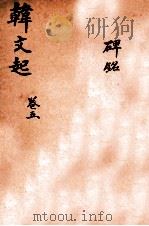 碑銘
韓文起
卷五
mtoou.info/edu/